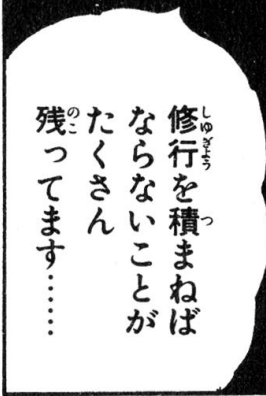 修行を積まねば
ならないことが
たくさん
残ってます……